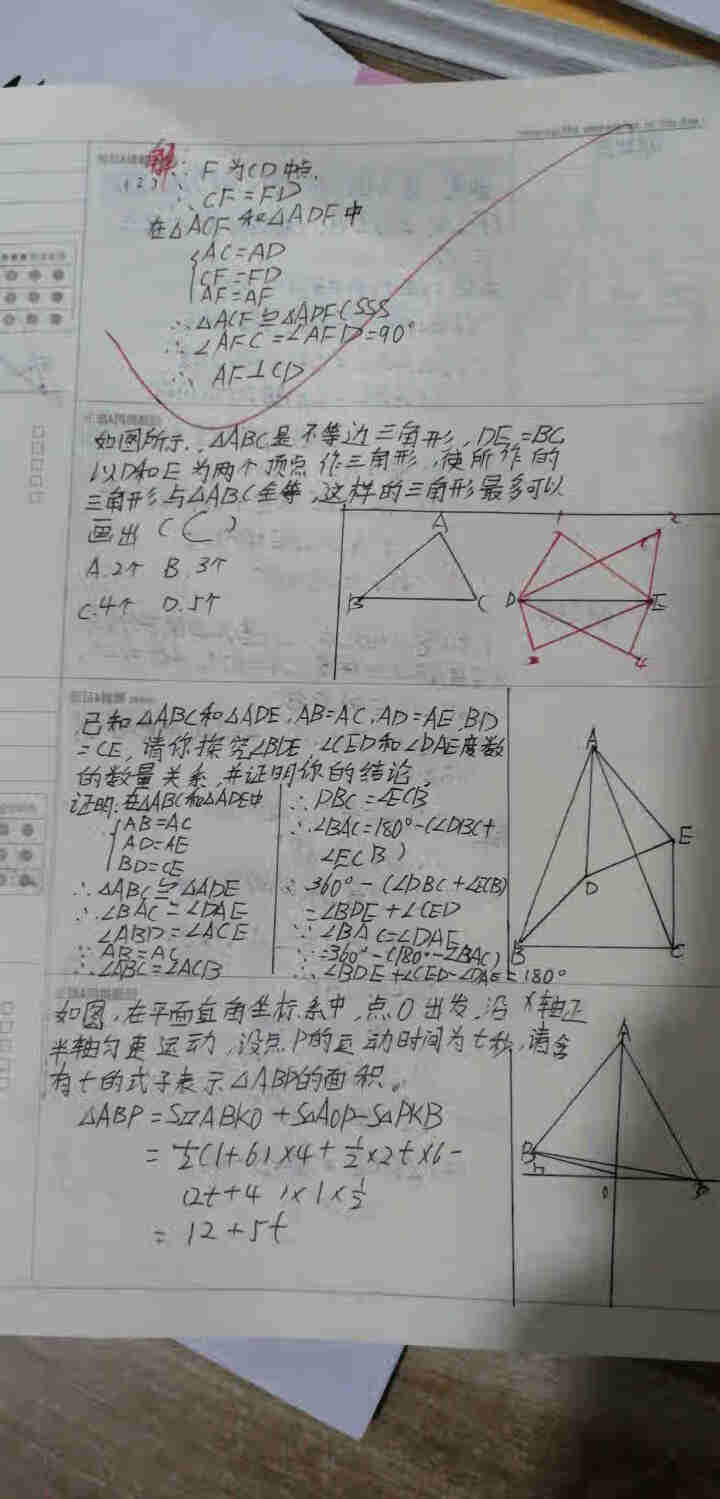 解:∵F为CD中点.
(2) ∴CF=FD
在△ACF和△ADF中
AC=AD
CF=FD
AF=AF
∴△ACF≌△ADF(SSS
∴∠AFC=∠AFD=90°
∴AF⊥CD
如图所示,△ABC是不等边三角形,DE=BC
以D和E为两个顶点作三角形,使所作的
三角形与△ABC全等,这样的三角形最多可以
画出(C)
A.2个 B.3个
C.4个 D.5个
A
B
C
1
2
D
E
3
4
已知△ABC和△ADE,AB=AC,AD=AE,BD
=CE,请你探究∠BDE,∠CED和∠DAE度数
的数量关系,并证明你的结论.
证明:在△ABC和△ADE中
AB=AC
AD=AE
BD=CE
∴△ABC≌△ADE
∴∠BAC=∠DAE
∠ABD=∠ACE
∵AB=AC
∴∠ABC=∠ACB
∴DBC=∠ECB
∴∠BAC=180°-(∠DBC+
∠ECB)
∵360°-(∠DBC+∠ECB)
=∠BDE+∠CED
∵∠BAC=∠DAE
∵=360°-(180°-∠BAC)
∴∠BDE+∠CED-∠DAE=180°
A
E
D
B
C
如图,在平面直角坐标系中,点O出发,沿x轴正
半轴匀速运动,设点P的运动时间为t秒,请含
有t的式子表示△ABP的面积。
△ABP=S▱ABKO+S△AOP-S△PKB
=½(1+6)×4+½×2t×6-
(2t+4)×1×½
=12+5t
A
B
O
P